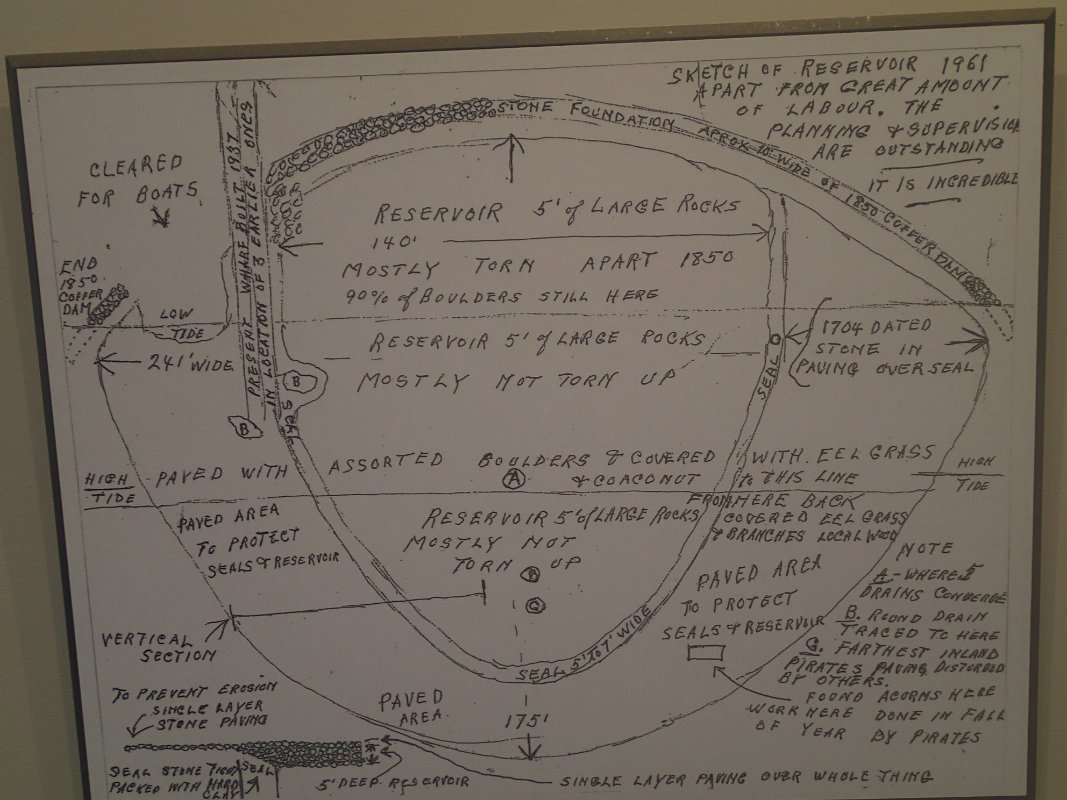 SKETCH OF RESERVOIR 1961
APART FROM GREAT AMOUNT
OF LABOUR. THE
PLANNING & SUPERVISION
ARE OUTSTANDING
IT IS INCREDIBLE
STONE FOUNDATION APROX 10' WIDE OF 1850 COFFER DAM
CLEARED
FOR BOATS
PRESENT WHARF BUILT 1937
IN LOCATION OF 3 EARLIER ONES
END
1850
COFFER
DAM
LOW
TIDE
241' WIDE
RESERVOIR 5' of LARGE ROCKS
140'
MOSTLY TORN APART 1850
90% of BOULDERS STILL HERE
RESERVOIR 5' of LARGE ROCKS
MOSTLY NOT TORN UP
1704 DATED
STONE IN
PAVING OVER SEAL
SEAL
SEAL
B
B
HIGH
TIDE
PAVED WITH ASSORTED BOULDERS & COVERED WITH EEL GRASS
& COACONUT to THIS LINE
A
HIGH
TIDE
FROM HERE BACK
COVERED EEL GRASS
& BRANCHES LOCAL WOOD
PAVED AREA
TO PROTECT
SEALS & RESERVOIR
RESERVOIR 5' of LARGE ROCKS
MOSTLY NOT
TORN UP
G
PAVED AREA
TO PROTECT
SEALS & RESERVOIR
NOTE
A - WHERE 5
DRAINS CONVERGE
B. ROUND DRAIN
TRACED TO HERE
G. FARTHEST INLAND
PIRATES PAVING DISTURBED
BY OTHERS.
FOUND ACORNS HERE
WORK HERE DONE IN FALL
OF YEAR BY PIRATES
VERTICAL
SECTION
SEAL 5' TO 7' WIDE
PAVED
AREA.
175'
TO PREVENT EROSION
SINGLE LAYER
STONE PAVING
SEAL STONE TIGHT
PACKED WITH HARD
CLAY
SEAL
5' DEEP RESERVOIR
SINGLE LAYER PAVING OVER WHOLE THING